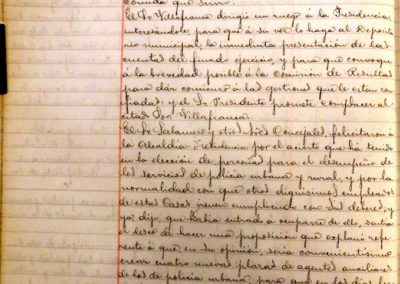 comida que sirvió.
El Sr. Villafranca dirigió un ruego á la Presidencia,
interesándole, para que á su vez lo haga al Deposita-
rio municipal, la inmediata presentación de las
cuentas del finado ejercicio, y para que convoque
á la brevedad posible á la Comisión de Resultas
para dar comienzo á las gestiones que le estan con-
fiadas; y el Sr. Presidente promete complacer al
citado Sor. Villafranca.
El Sr. Salamero y otros Sres. Concejales, felicitaron á
la Alcaldía Presidencia por el acierto que ha tenido
en la elección de personal para el desempeño de
los servicios de policia urbana y rural, y por la
normalidad con que otros dignísimos empleados
de estas Casas vienen cumpliendo con sus deberes, y
ya dijo, que había entrado á ocuparse de ello, sentia
el deseo de hacer una proposición que explanó refe-
rente á que en su opinión, sería convenientisimo
crear cuatro nuevas plazas de agentes auxilia-
res de los de policia urbana, para que en los dias